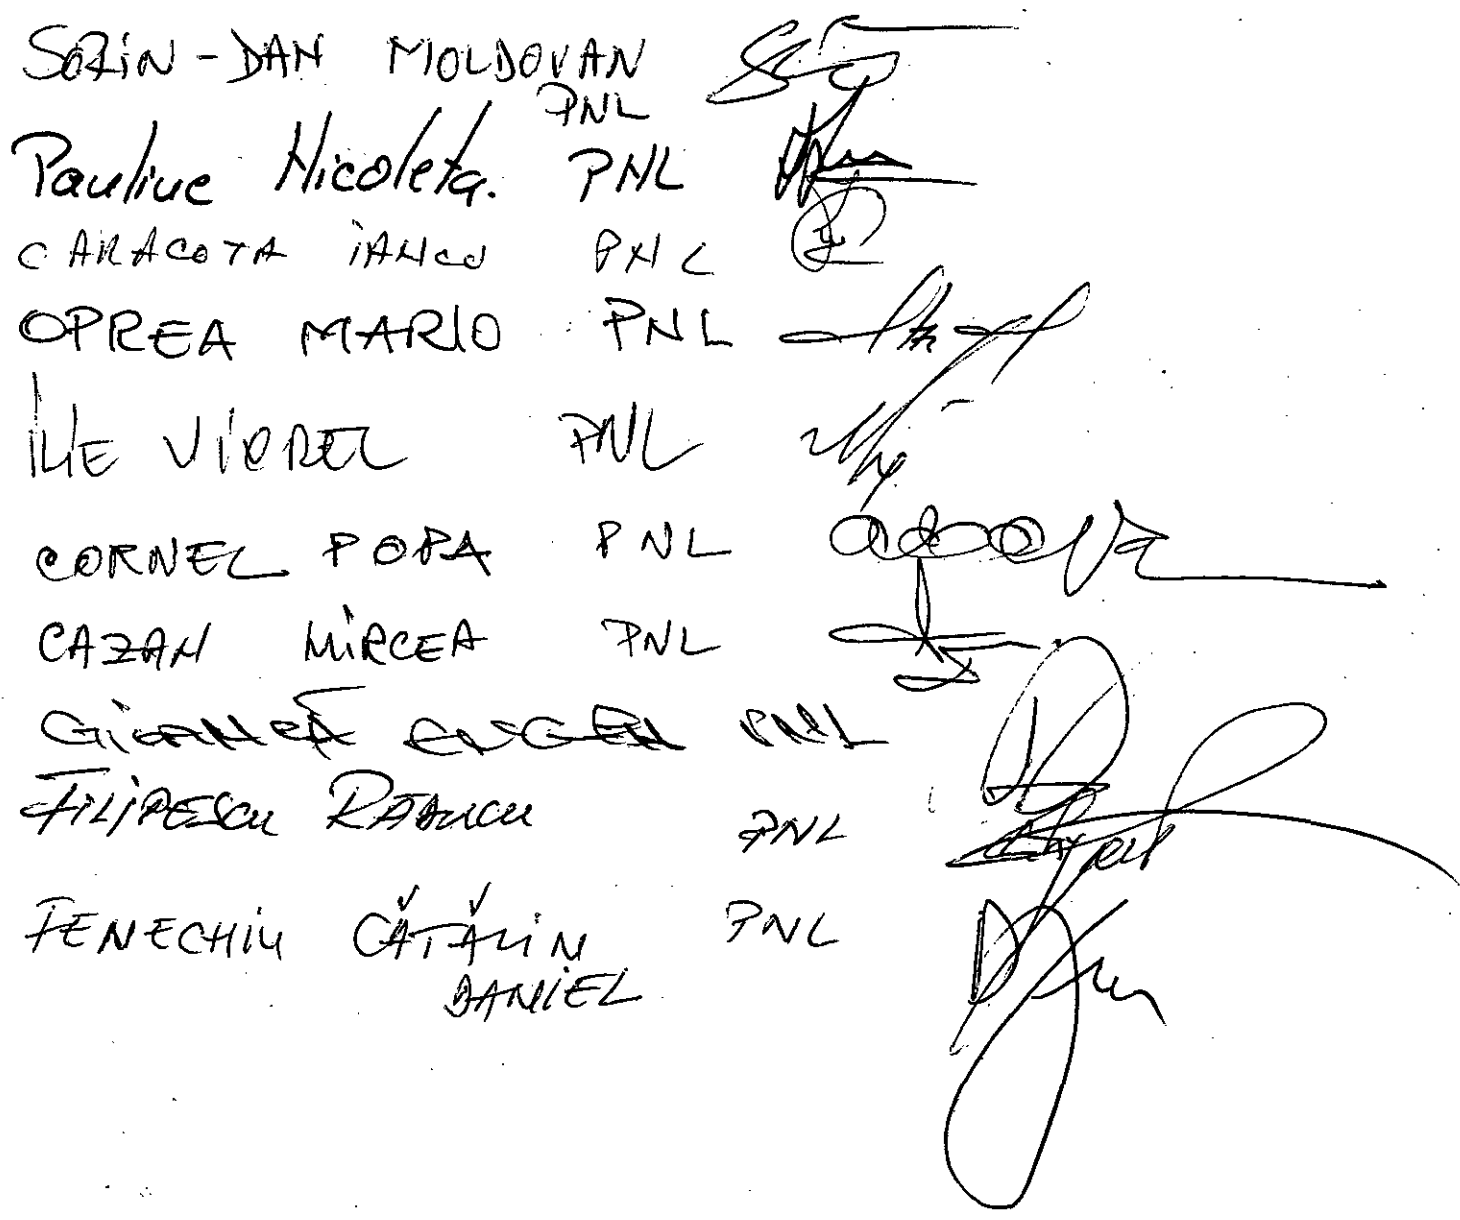 SORIN-DAN MOLDOVAN
PNL
Pauliuc Nicoleta. PNL
CARACOTA IANCU PNL
OPREA MARIO PNL
ILIE VIOREL PNL
CORNEL POPA PNL
CAZAN MIRCEA PNL
EUGEN PNL
FILIPESCU RĂDUCU PNL
FENECHIU CĂTĂLIN PNL
DANIEL